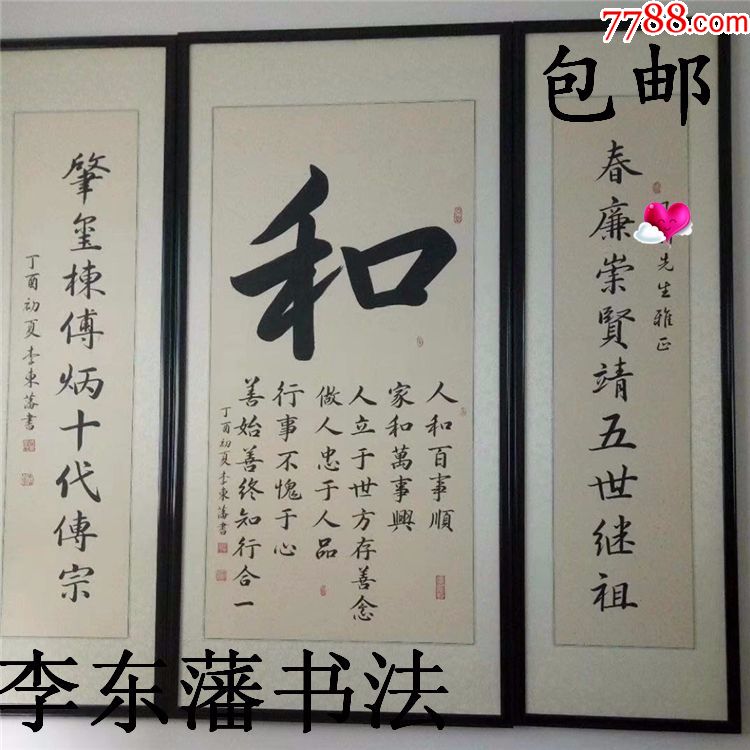 7788.com
包邮
春廉崇賢靖五世继祖
先生雅正
和
人和百事順
家和萬事興
人立于世方存善念
做人忠于人品
行事不愧于心
善始善终知行合一
丁酉初夏李東藩書
肇玺棟傅炳十代傳宗
丁酉初夏李東藩書
李东藩书法